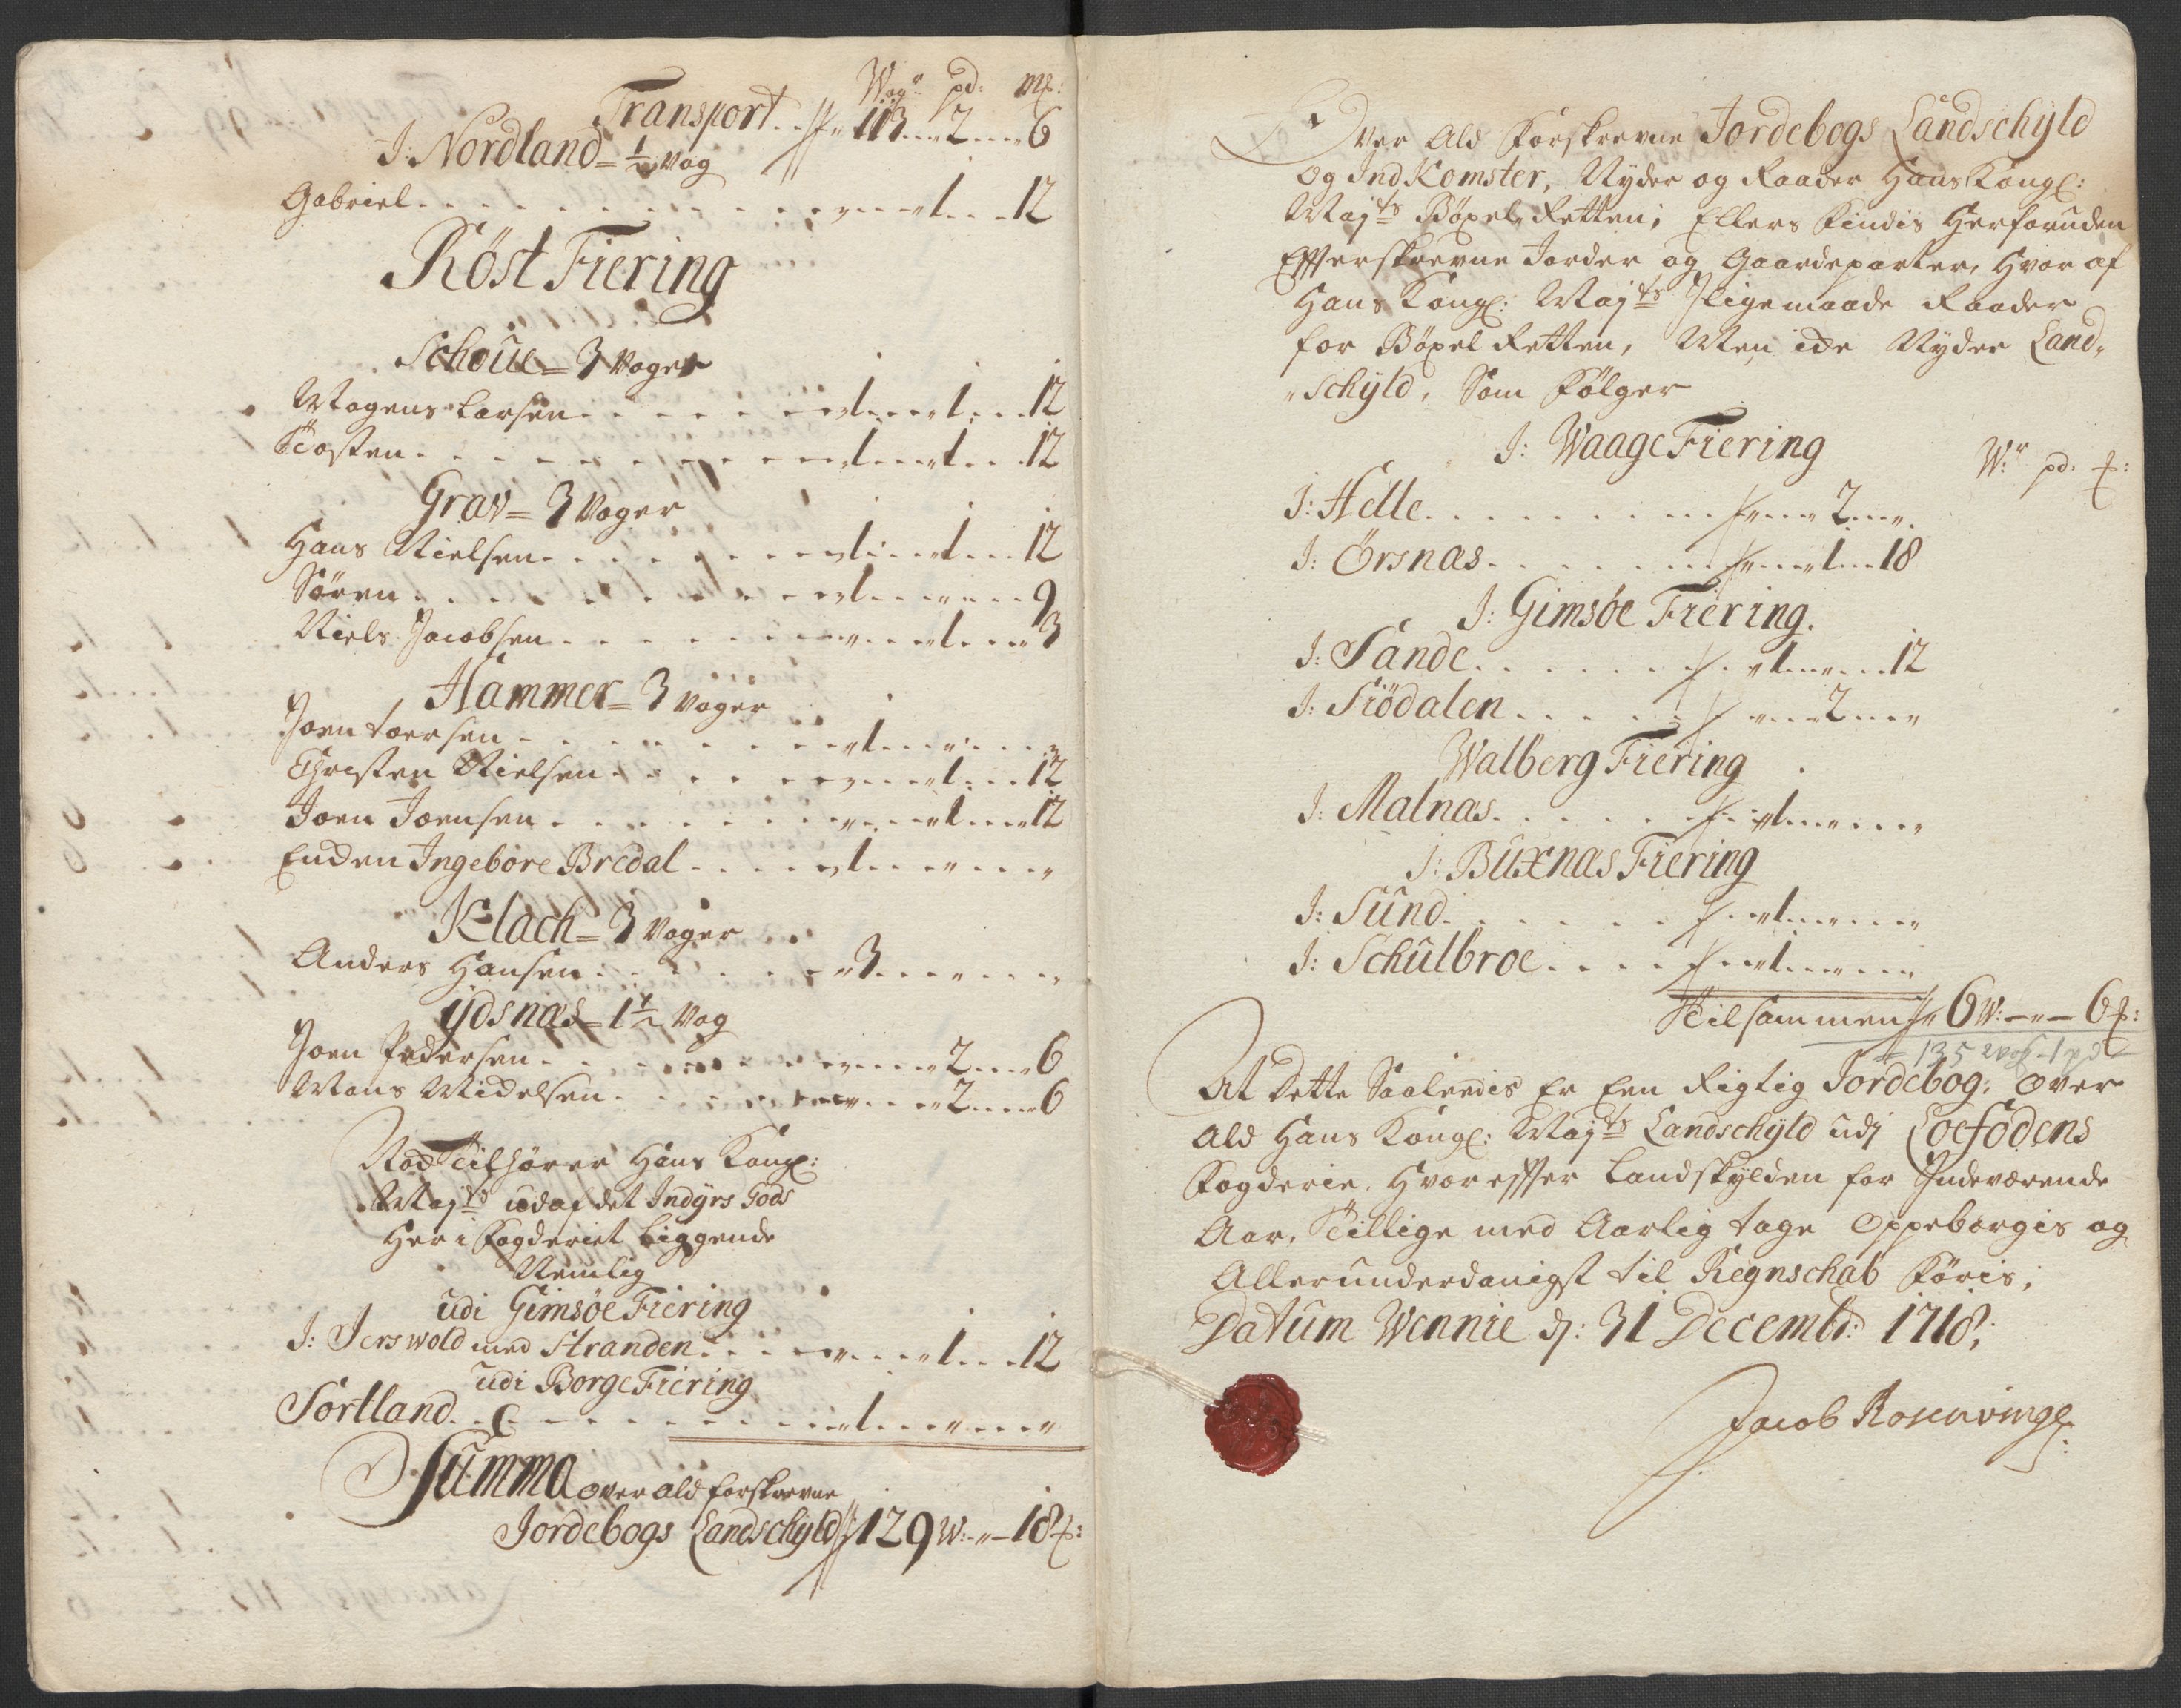 Wogr pd: m℔:
Transport . . 113 . . 2 . . 6
J: Nordland = ½ vog
Gabriel . . . " . . 1 . . 12
Röst Fiering
Schoüe = 3 Voger
Mogens Larsen . . . 1 . . 1 . . 12
Tosten . . . 1 . . 1 . . 12
Grav = 3 Voger
Hans Nielsen . . . 1 . . 1 . . 12
Sören . . . 1 . . " . . 9
Niels Jacobsen . . . " . . 1 . . 3
Hammer = 3 voger
Joen Toersen . . . 1 . . " . . "
Christen Nielsen . . . " . . 1 . . 12
Joen Joensen . . . " . . 1 . . 12
Encken Ingebore Bredal . . . 1 . . " . . "
Klach = 3 voger
Anders Hansen . . . 3 . . " . . "
ÿdsnæs = 1½ Vog
Joen Pedersen . . . " . . 2 . . 6
Mons Mickelsen . . . " . . 2 . . 6
Nock Tilhörer Hans Kongl:
Majts udaf det Indÿrs Gods
Her i Fogderiet Liggende
Nemlig
udi Gimsöe Fiering
J: Jerswold med Stranden . . . " . . 1 . . 12
udi Borge Fiering
Sortland . . . 1 . . " . . "
Summa over ald forskrevne
Jordebogs Landschÿld 129 W: - " - 18 ℔:
Over Ald Forskrevne Jordebogs Landschÿld
Og IndKomster, Nyder og Raader Hans Kongl:
Majts Böxel Retten; Ellers Findis Herforuden
Efferskrevne Jorder og Gaardeparter, Hvor af
Hans Kongl: Majts Iligemaade Raader
for Böxel Retten, Men icke Nyder Land,
"Schÿld, Som Fölger
J: Waage Fiering
W:r pd. ℔:
J: Helle . . . " . . 2 . . "
J: Örsnæs . . . " . . 1 . . 18
J: Gimsöe Fiering.
J: Sande . . . 1 . . " . . 12
J: Siödalen . . . " . . 2 . . "
Walberg Fiering
J: Malnæs . . . 1 . . " . . "
J: Buxnæs Fiering
J: Sund . . . 1 . . " . . "
J: Schulbroe . . . 1 . . " . . "
Tilsammen 6 W: - " - 6 ℔:
= 135 vog - 1 pd
At Dette Saaledis Er Een Rigtig Jordebog, over
Ald Hans Kongl: Majts Landschÿld udj Loefodens
Fogderie, Hvoreffter Landskylden for Indeværende
Aar, Tillige med Aarlig tage Oppebørgis og
Allerunderdanigst til Regnschab Föris;
Datum Wennie dj: 31 Decembr: 1718;
Jacob Rosenvinge: